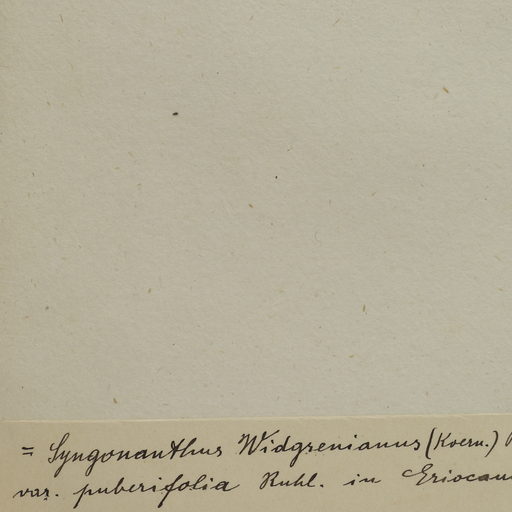 = Syngonanthus Widgrenianus (Koern.)
var. puberifolia Ruhl. in Eriocau